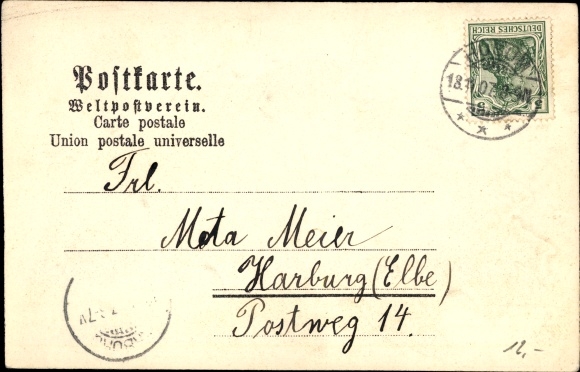 Postkarte.
Weltpostverein.
Carte postale
Union postale universelle
DEUTSCHES REICH
5 5
18.11.07
Frl.
Meta Meier
Harburg (Elbe)
Postweg 14.
12,-